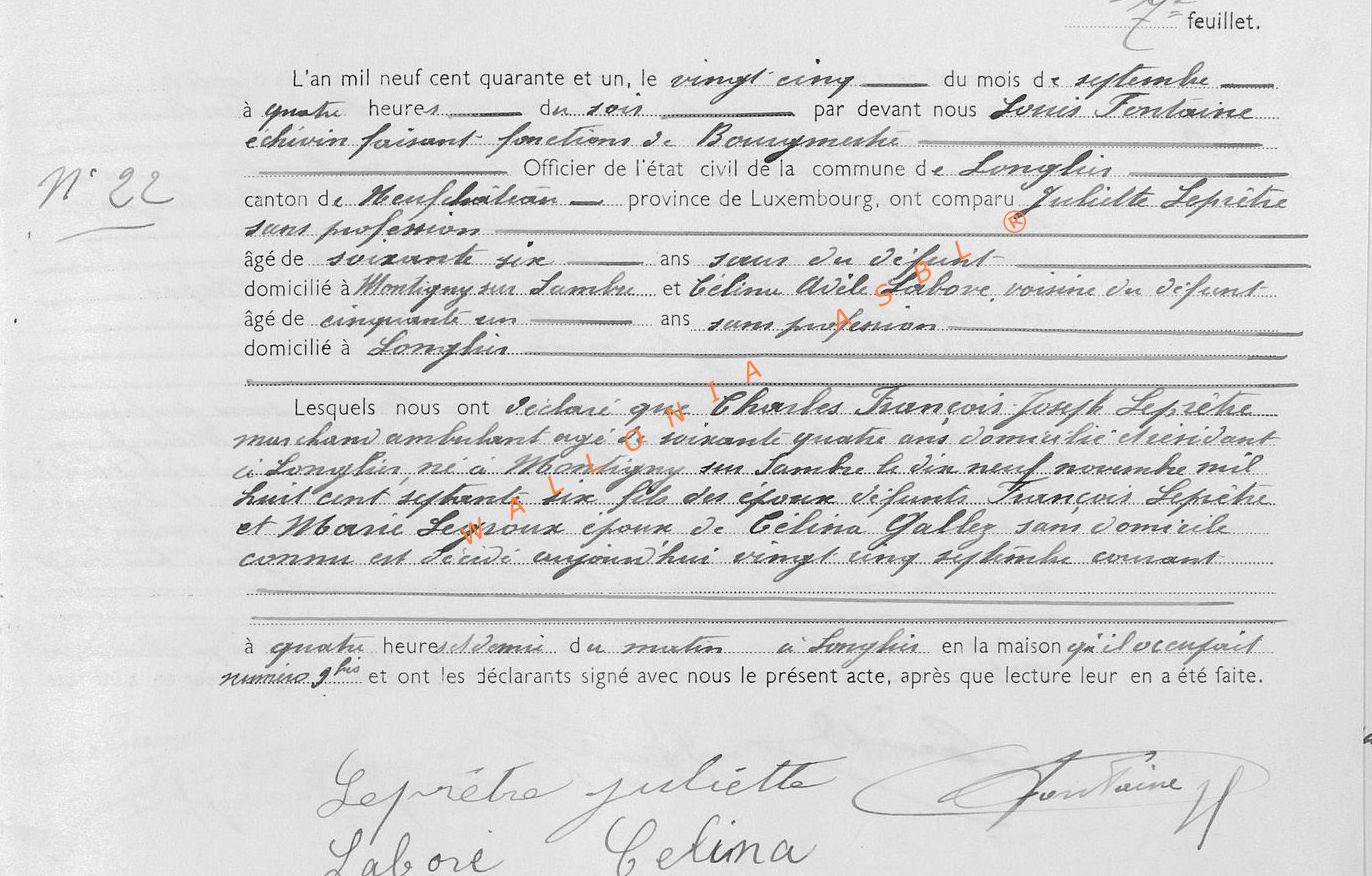 7e feuillet.
L'an mil neuf cent quarante et un, le vingt cinq du mois de septembre
à quatre heures du soir par devant nous Louis Fontaine
échévin faisant fonctions de Bourgmestre
Officier de l'état civil de la commune de Longlier
N° 22
canton de Neufchâteau province de Luxembourg, ont comparu Juliette Leprêtre
sans profession
âgé de soixante six ans sœur du défunt
domicilié à Montigny sur Sambre et Célina Adèle Labore, voisine du défunt
âgé de cinquante un ans sans profession
domicilié à Longlier
Lesquels nous ont déclaré que Charles François Joseph Leprêtre
marchand ambulant agé de soixante quatre ans domicilié et résidant
à Longlier, né à Montigny sur Sambre le dix neuf novembre mil
huit cent septante six fils des époux défunts François Leprêtre
et Marie Leyroux époux de Célina Gallez sans domicile
connu est décédé aujourd'hui vingt cinq septembre courant
à quatre heures et demie du matin à Longlier en la maison qu'il occupait
numéro 9bis et ont les déclarants signé avec nous le présent acte, après que lecture leur en a été faite.
Leprêtre juliette Fontaine
Labore Celina
WALLONIA ASBL ®